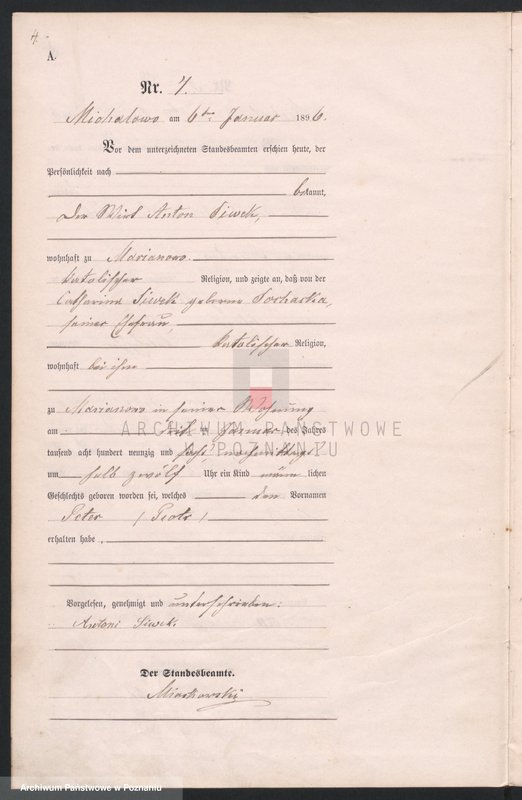 4.
A.
Nr. 4.
Michalowo am 6ten Januar 1896.
Vor dem unterzeichneten Standesbeamten erschien heute, der
Persönlichkeit nach
bekannt,
der Wirt Anton Siwek,
wohnhaft zu Marianowo.
katolischer Religion, und zeigte an, daß von der
Catharina Siwek geborene
seiner Ehefrau,
katolischer Religion,
wohnhaft bei ihm
zu Marianowo in seiner Wohnung
am Januar des Jahres
tausend acht hundert neunzig und sechs nachmittags
um halb zwölf Uhr ein Kind männlichen
Geschlechts geboren worden sei, welches den Vornamen
Peter (Piotr)
erhalten habe.
Vorgelesen, genehmigt und unterschrieben:
Antoni Siwek.
Der Standesbeamte.
ARCHIWUM PAŃSTWOWE
W POZNANIU
Archiwum Państwowe w Poznaniu